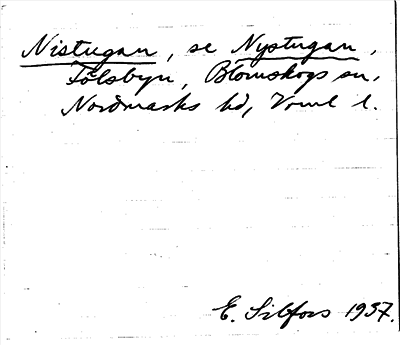 Nistugan, se Nystugan,
Fölsbyn, Blomskogs sn,
Nordmarks hd, Vrml l.
E. Sibfors 1937.